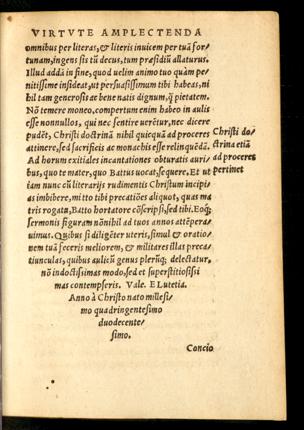 VIRTVTE AMPLECTENDA
omnibus per literas, & literis inuicem per tuã for/
tunam, ingens sis tũ decus, tum præsidiũ allaturus.
Illud addã in fine, quod uelim animo tuo quàm pe/
nitissime insideat, ut persuasissimum tibi habeas, ni
hil tam generosis ac bene natis dignum, q̃ pietatem.
Nõ temere moneo. compertum enim habeo in aulis
esse nonnullos, qui nec sentire uerẽtur, nec dicere
pudẽt, Christi doctrinã nihil quicquã ad proceres
attinere, sed sacrificis ac monachis esse relinquẽdã.
Christi do/
ctrina etiã
ad proceres
pertinet
Ad horum exitiales incantationes obturatis auri/
bus, quo te mater, quo Battus uocat, sequere. Et ut
iam nunc cũ literarijs rudimentis Christum incipi/
as imbibere, mitto tibi precatiões aliquot, quas ma
tris rogatu, Batto hortatore cõscripsi, sed tibi. Eoq́;
sermonis figuram nõnihil ad tuos annos attẽpera/
uimus. Quibus si diligẽter uteris, simul & oratio/
nem tuã feceris meliorem, & militares illas preca/
tiunculas, quibus aulicũ genus plerũq; delectatur,
nõ indoctissimas modo, sed et superstitiosissi
mas contempseris. Vale. E Lutetia.
Anno à Christo nato millesi/
mo quadringentesimo
duodecente/
simo.
Concio